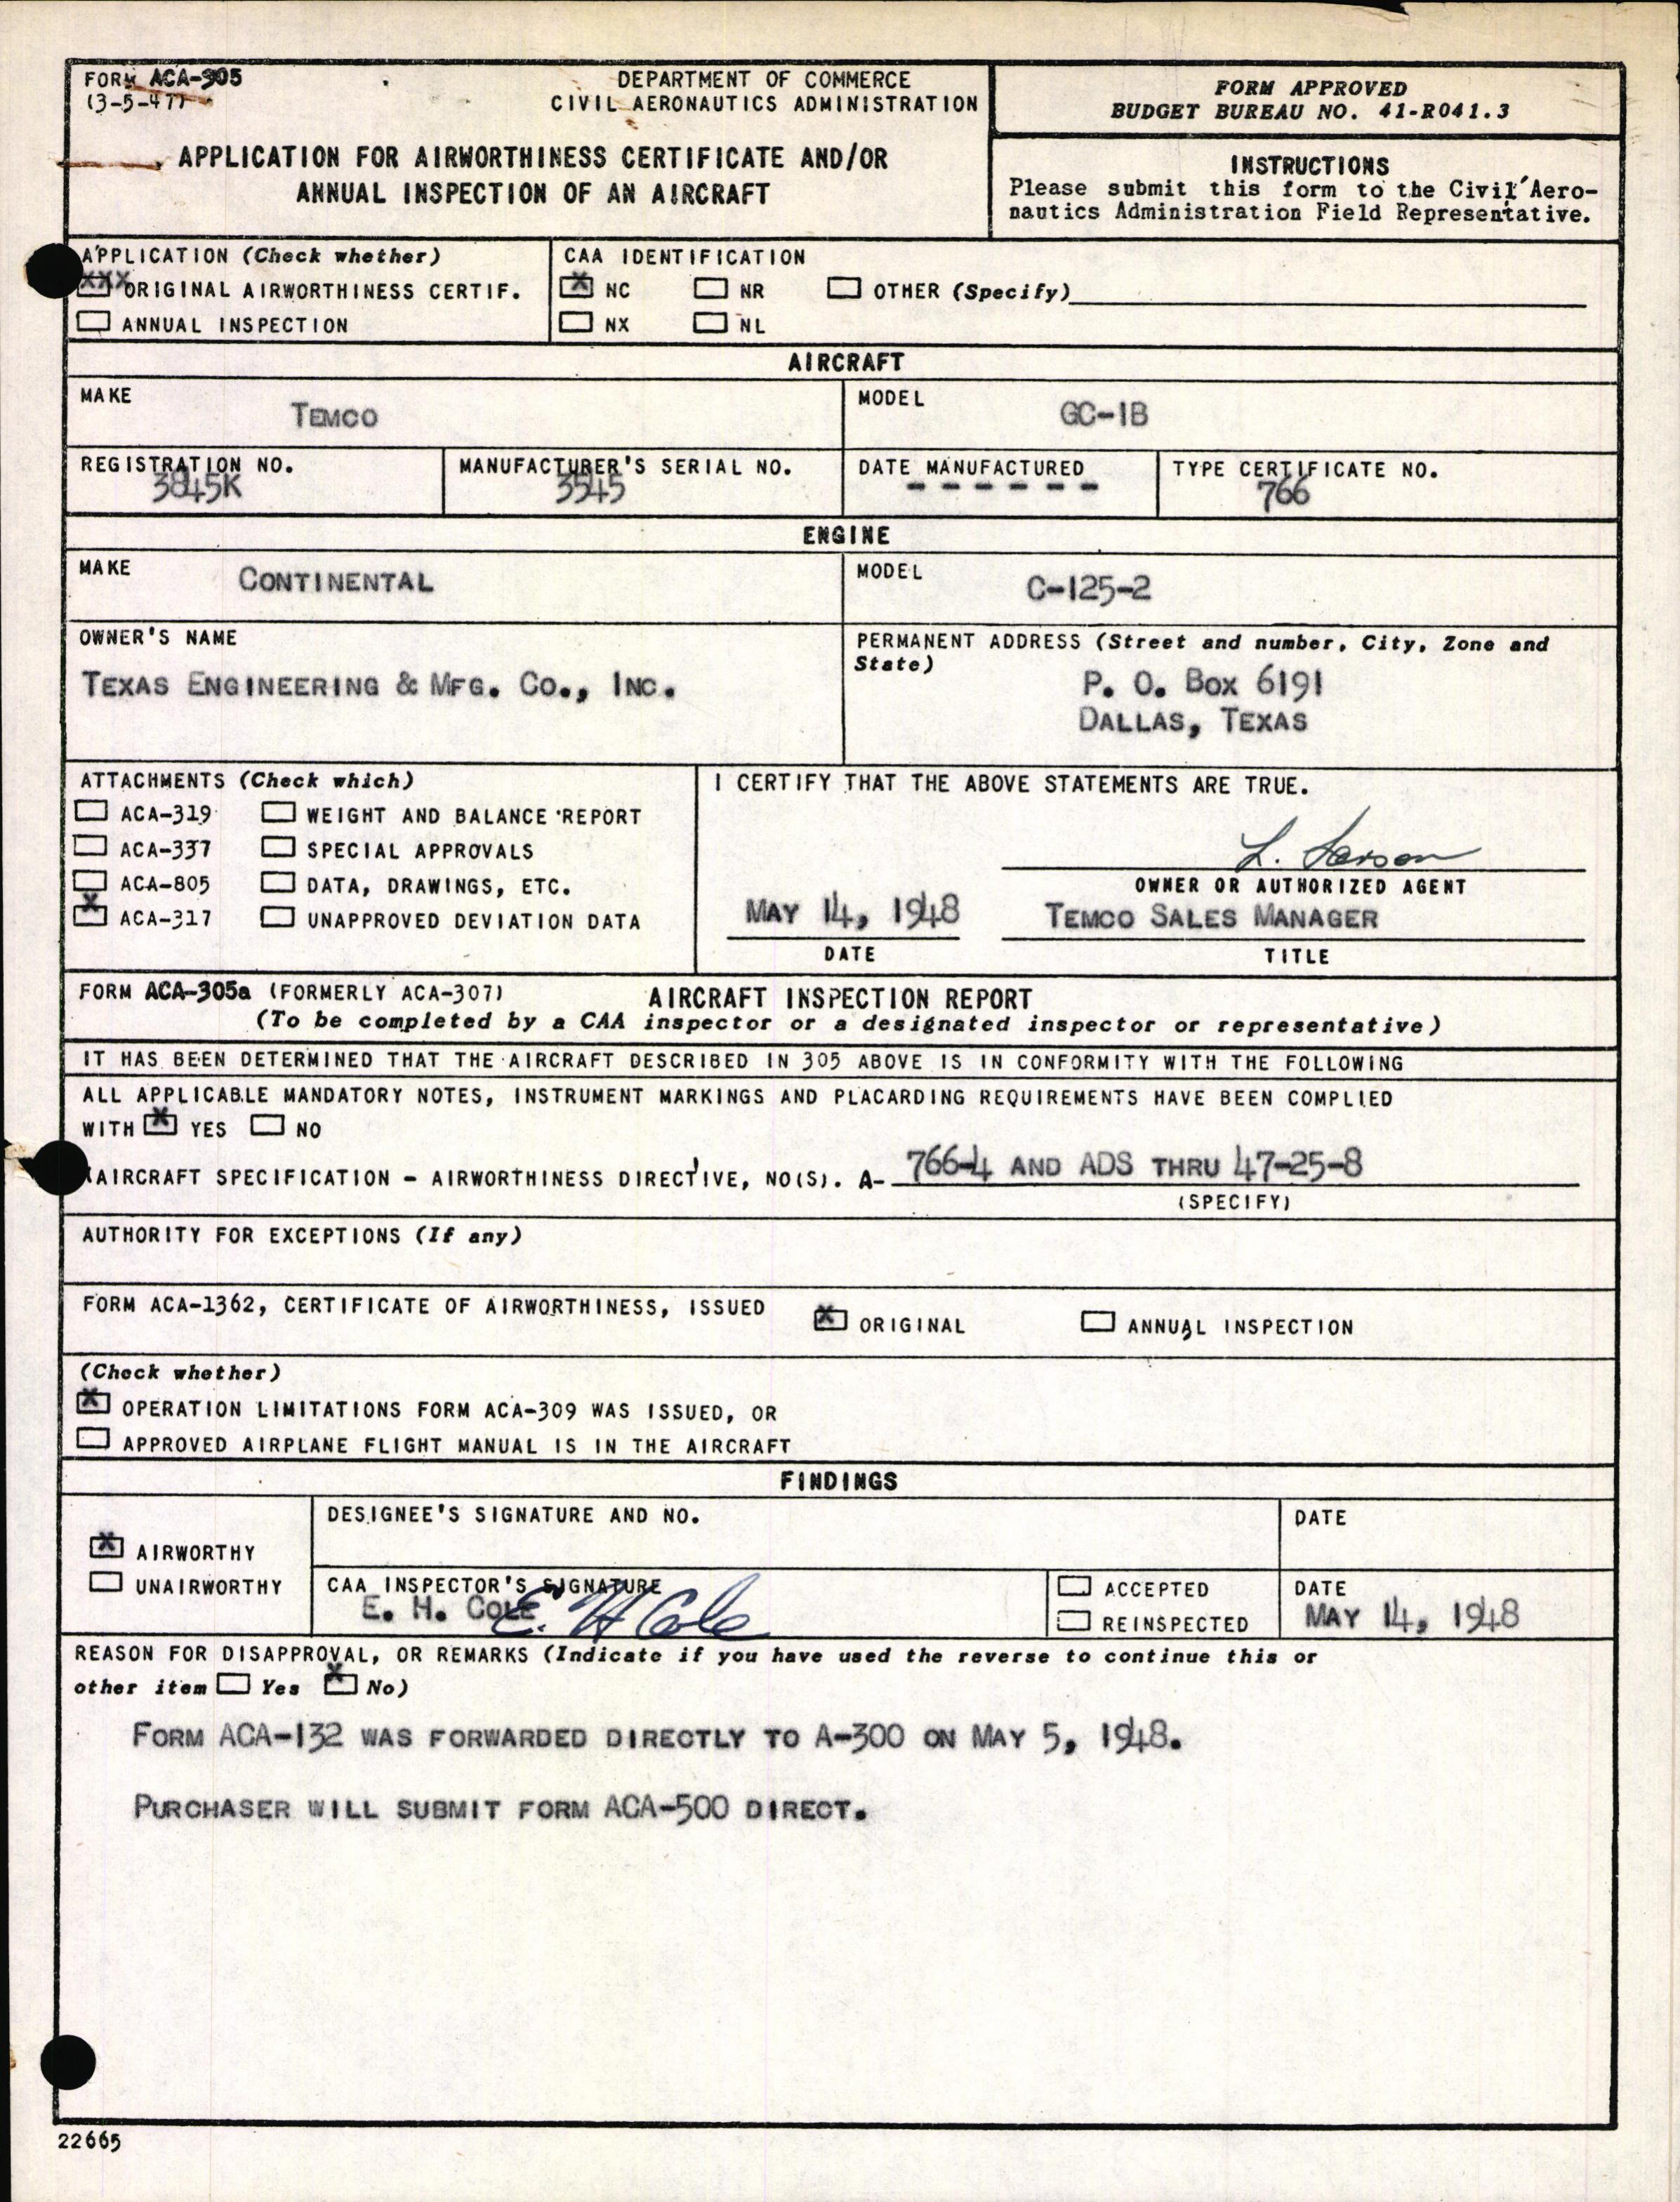 FORM ACA-305
(3-5-47)
DEPARTMENT OF COMMERCE
CIVIL AERONAUTICS ADMINISTRATION
APPLICATION FOR AIRWORTHINESS CERTIFICATE AND/OR
ANNUAL INSPECTION OF AN AIRCRAFT
FORM APPROVED
BUDGET BUREAU NO. 41-R041.3
INSTRUCTIONS
Please submit this form to the Civil Aero-
nautics Administration Field Representative.
APPLICATION (Check whether)
XXX ORIGINAL AIRWORTHINESS CERTIF.
ANNUAL INSPECTION
CAA IDENTIFICATION
X NC NR OTHER (Specify)
NX NL
AIRCRAFT
MAKE
TEMCO
MODEL
GC-1B
REGISTRATION NO.
3845K
MANUFACTURER'S SERIAL NO.
3545
DATE MANUFACTURED
- - - - - -
TYPE CERTIFICATE NO.
766
ENGINE
MAKE
CONTINENTAL
MODEL
C-125-2
OWNER'S NAME
TEXAS ENGINEERING & MFG. CO., INC.
PERMANENT ADDRESS (Street and number, City, Zone and
State)
P. O. BOX 6191
DALLAS, TEXAS
ATTACHMENTS (Check which)
ACA-319 WEIGHT AND BALANCE REPORT
ACA-337 SPECIAL APPROVALS
ACA-805 DATA, DRAWINGS, ETC.
X ACA-317 UNAPPROVED DEVIATION DATA
I CERTIFY THAT THE ABOVE STATEMENTS ARE TRUE.
L. Larson
OWNER OR AUTHORIZED AGENT
MAY 14, 1948 TEMCO SALES MANAGER
DATE TITLE
FORM ACA-305a (FORMERLY ACA-307) AIRCRAFT INSPECTION REPORT
(To be completed by a CAA inspector or a designated inspector or representative)
IT HAS BEEN DETERMINED THAT THE AIRCRAFT DESCRIBED IN 305 ABOVE IS IN CONFORMITY WITH THE FOLLOWING
ALL APPLICABLE MANDATORY NOTES, INSTRUMENT MARKINGS AND PLACARDING REQUIREMENTS HAVE BEEN COMPLIED
WITH X YES NO
(AIRCRAFT SPECIFICATION - AIRWORTHINESS DIRECTIVE, NO(S). A- 766-4 AND ADS THRU 47-25-8
(SPECIFY)
AUTHORITY FOR EXCEPTIONS (If any)
FORM ACA-1362, CERTIFICATE OF AIRWORTHINESS, ISSUED X ORIGINAL ANNUAL INSPECTION
(Check whether)
X OPERATION LIMITATIONS FORM ACA-309 WAS ISSUED, OR
APPROVED AIRPLANE FLIGHT MANUAL IS IN THE AIRCRAFT
FINDINGS
X AIRWORTHY
UNAIRWORTHY
DESIGNEE'S SIGNATURE AND NO.
DATE
CAA INSPECTOR'S SIGNATURE
E. H. COLE E. H Cole
ACCEPTED
REINSPECTED
DATE
MAY 14, 1948
REASON FOR DISAPPROVAL, OR REMARKS (Indicate if you have used the reverse to continue this or
other item Yes X No)
FORM ACA-132 WAS FORWARDED DIRECTLY TO A-300 ON MAY 5, 1948.
PURCHASER WILL SUBMIT FORM ACA-500 DIRECT.
22665